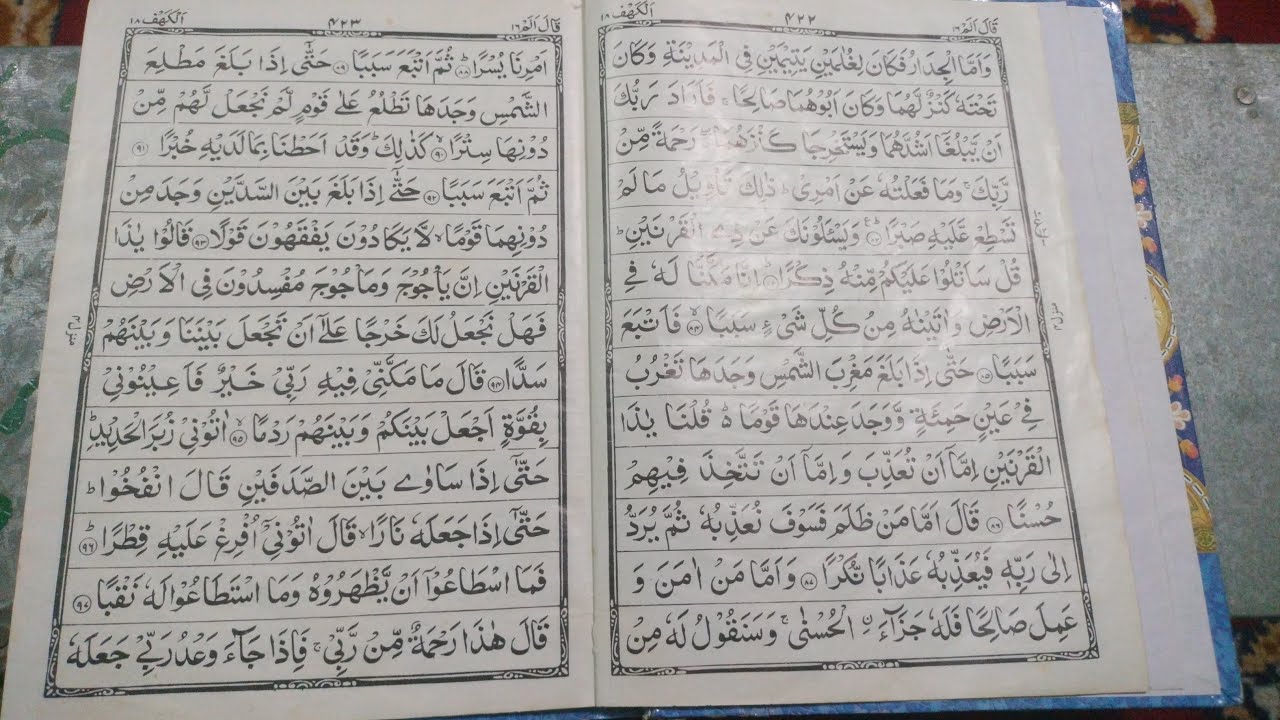 قَالَ اَلَمْ ١٦
٤٢٢
اَلْكَهْف ١٨
وَاَمَّا الْجِدَارُ فَكَانَ لِغُلٰمَيْنِ يَتِيْمَيْنِ فِى الْمَدِيْنَةِ وَكَانَ
تَحْتَهٗ كَنْزٌ لَّهُمَا وَكَانَ اَبُوْهُمَا صَالِحًا ۚ فَاَرَادَ رَبُّكَ
اَنْ يَّبْلُغَاۤ اَشُدَّهُمَا وَيَسْتَخْرِجَا كَنْزَهُمَا ۖ رَحْمَةً مِّنْ
رَّبِّكَ ۚ وَمَا فَعَلْتُهٗ عَنْ اَمْرِىْ ؕ ذٰلِكَ تَاْوِيْلُ مَا لَمْ
تَسْطِعْ عَّلَيْهِ صَبْرًا ؕ۸۲ وَيَسْـَٔلُوْنَكَ عَنْ ذِى الْقَرْنَيْنِ ؕ
قُلْ سَاَتْلُوْا عَلَيْكُمْ مِّنْهُ ذِكْرًا ؕ۸۳ اِنَّا مَكَّنَّا لَهٗ فِى
الْاَرْضِ وَاٰتَيْنٰهُ مِنْ كُلِّ شَىْءٍ سَبَبًا ۸۴ فَاَتْبَعَ
سَبَبًا ۸۵ حَتّٰىۤ اِذَا بَلَغَ مَغْرِبَ الشَّمْسِ وَجَدَهَا تَغْرُبُ
فِىْ عَيْنٍ حَمِئَةٍ وَّوَجَدَ عِنْدَهَا قَوْمًا ؕ قُلْنَا يٰذَا
الْقَرْنَيْنِ اِمَّاۤ اَنْ تُعَذِّبَ وَاِمَّاۤ اَنْ تَتَّخِذَ فِيْهِمْ
حُسْنًا ۸۶ قَالَ اَمَّا مَنْ ظَلَمَ فَسَوْفَ نُعَذِّبُهٗ ثُمَّ يُرَدُّ
اِلٰى رَبِّهٖ فَيُعَذِّبُهٗ عَذَابًا نُّكْرًا ۸۷ وَاَمَّا مَنْ اٰمَنَ وَ
عَمِلَ صَالِحًا فَلَهٗ جَزَآءَ ۨالْحُسْنٰى ۚ وَسَنَقُوْلُ لَهٗ مِنْ
قَالَ اَلَمْ ١٦
٤٢٣
اَلْكَهْف ١٨
اَمْرِنَا يُسْرًا ؕ۸۸ ثُمَّ اَتْبَعَ سَبَبًا ۸۹ حَتّٰىۤ اِذَا بَلَغَ مَطْلِعَ
الشَّمْسِ وَجَدَهَا تَطْلُعُ عَلٰى قَوْمٍ لَّمْ نَجْعَلْ لَّهُمْ مِّنْ
دُوْنِهَا سِتْرًا ۙ۹۰ كَذٰلِكَ ؕ وَقَدْ اَحَطْنَا بِمَا لَدَيْهِ خُبْرًا ۹۱
ثُمَّ اَتْبَعَ سَبَبًا ۹۲ حَتّٰىۤ اِذَا بَلَغَ بَيْنَ السَّدَّيْنِ وَجَدَ مِنْ
دُوْنِهِمَا قَوْمًا ۙ لَّا يَكَادُوْنَ يَفْقَهُوْنَ قَوْلًا ۹۳ قَالُوْا يٰذَا
الْقَرْنَيْنِ اِنَّ يَاْجُوْجَ وَمَاْجُوْجَ مُفْسِدُوْنَ فِى الْاَرْضِ
فَهَلْ نَجْعَلُ لَكَ خَرْجًا عَلٰۤى اَنْ تَجْعَلَ بَيْنَنَا وَبَيْنَهُمْ
سَدًّا ۹۴ قَالَ مَا مَكَّنِّىْ فِيْهِ رَبِّىْ خَيْرٌ فَاَعِيْنُوْنِىْ
بِقُوَّةٍ اَجْعَلْ بَيْنَكُمْ وَبَيْنَهُمْ رَدْمًا ۙ۹۵ اٰتُوْنِىْ زُبَرَ الْحَدِيْدِ ؕ
حَتّٰىۤ اِذَا سَاوٰى بَيْنَ الصَّدَفَيْنِ قَالَ انْفُخُوْا ؕ
حَتّٰىۤ اِذَا جَعَلَهٗ نَارًا ۙ قَالَ اٰتُوْنِىْۤ اُفْرِغْ عَلَيْهِ قِطْرًا ؕ۹۶
فَمَا اسْطَاعُوْۤا اَنْ يَّظْهَرُوْهُ وَمَا اسْتَطَاعُوْا لَهٗ نَقْبًا ۹۷
قَالَ هٰذَا رَحْمَةٌ مِّنْ رَّبِّىْ ۚ فَاِذَا جَآءَ وَعْدُ رَبِّىْ جَعَلَهٗ